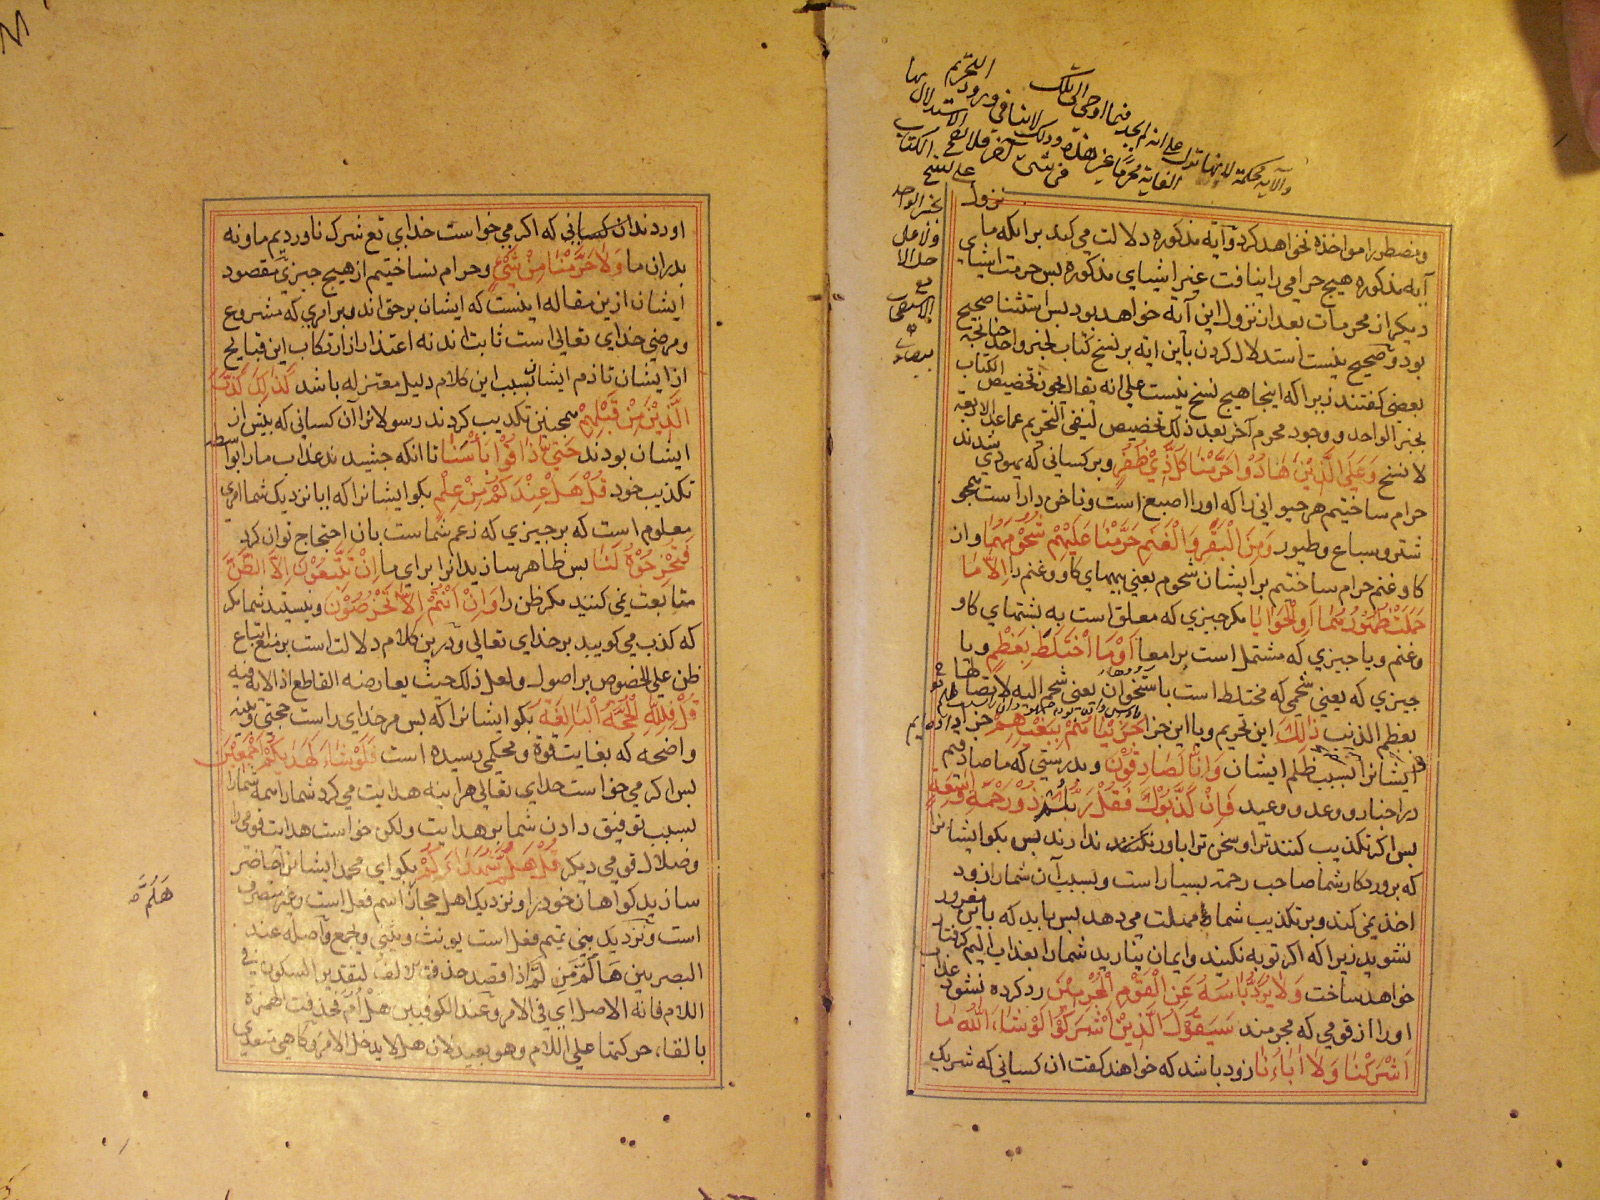 والآیة محکمة لانها تدل علی انه لم یجد فیما اوحی الی تلک
الغایة محرما غیر هذه وذلک لا ینافی ورود التحریم
فی شیء آخر فلا یصح الاستدلال بها
علی نسخ الکتاب
بخبر الواحد
ولا علی
حل الا
مع
الاستصحاب
بیضاوی
نزول
ومضطر را مواخذه نخواهد کرد و آیه مذکوره دلالت می کند برانکه ما
آیه مذکوره هیچ حرامی را نیافت غیر اشیای مذکوره پس حرمت اشیای
دیگر از محرمات بعد از نزول این آیه خواهد بود پس استثنا صحیح
بود و صحیح نیست استدلال کردن باین ایه بر نسخ کتاب بخبر واحد چنانچه
بعضی گفتند زیرا که اینجا هیچ نسخ نیست علی انه یقال یجوز تخصیص الکتاب
بخبر الواحد و وجود محرم آخر بعد ذلک تخصیص لنفی التحریم عما عدا الاربعة
لا نسخ وَعَلَى الَّذِينَ هَادُوا حَرَّمْنَا كُلَّ ذِي ظُفُرٍ و بر کسانی که یهودی شدند
حرام ساختیم هر حیوانی را که او را اصبع است و ناخن دار است همچو
شتر و سباع و طیور وَمِنَ الْبَقَرِ وَالْغَنَمِ حَرَّمْنَا عَلَيْهِمْ شُحُومَهُمَا و از
کاو و غنم حرام ساختیم بر ایشان شحوم یعنی پیهای کاو و غنم را اِلَّا مَا
حَمَلَتْ ظُهُورُهُمَا اَوِ الْحَوَايَا مکر چیزی که معلق است به پشتهای کاو
و غنم و یا چیزی که مشتمل است بر امعا اَوْ مَا اخْتَلَطَ بِعَظْمٍ و یا
چیزی که یعنی شحمی که مختلط است باستخوان یعنی شحم الیه لاتصالها
بعظم الذنب ذَلِكَ این تحریم و یا این جزا جَزَيْنَاهُمْ بِبَغْيِهِمْ جزا داده ایم
ایشانرا بسبب ظلم ایشان وَاِنَّا لَصَادِقُونَ و بدرستی که ما صادقیم
در اخبار و وعد و وعید فَاِنْ كَذَّبُوكَ فَقُلْ رَبُّكُمْ ذُو رَحْمَةٍ وَاسِعَةٍ
پس اکر تکذیب کنند ترا و سخن ترا باور ندارند پس بکو ایشانرا
که پروردکار شما صاحب رحمة بسیار است و بسبب آن شمارا زود
اخذ نمی کند و بر تکذیب شما مهلت می دهد پس باید که باین مغرور
نشوید زیرا که اکر توبه نکنید و ایمان نیارید شمارا بعذاب الیم کرفتار
خواهد ساخت وَلَا يُرَدُّ بَأْسُهُ عَنِ الْقَوْمِ الْمُجْرِمِينَ رد کرده نشود عذاب
او را از قومی که مجرمند سَيَقُولُ الَّذِينَ اَشْرَكُوا لَوْ شَاءَ اللهُ مَا
اَشْرَكْنَا وَلَا اٰبَاؤُنَا زود باشد که خواهند کفت ان کسانی که شریک
اوردند ان کسانی که اکر می خواست خدای تع شرک ناوردیم ما و نه
پدران ما وَلَا حَرَّمْنَا مِنْ شَيْءٍ و حرام نساختیم از هیچ چیزی مقصود
ایشان ازین مقاله اینست که ایشان بر حق اند و بر امری که مشروع
و مرضی خدای تعالی است ثابت اند نه اعتذار از ارتکاب این قبایح
از ایشان تا ذم ایشان بسبب این کلام دلیل معتزله باشد كَذَلِكَ كَذَّبَ
الَّذِينَ مِنْ قَبْلِهِمْ همچنین تکذیب کردند رسولانرا آن کسانی که پیش از
ایشان بودند حَتَّى ذَاقُوا بَأْسَنَا تا انکه چشیدند عذاب مارا بواسطه
تکذیب خود قُلْ هَلْ عِنْدَكُمْ مِنْ عِلْمٍ بکو ایشانرا که ایا نزدیک شما امری
معلوم است که بر چیزی که زعم شماست بان احتجاج توان کرد
فَتُخْرِجُوهُ لَنَا پس ظاهر سازید انرا برای ما اِنْ تَتَّبِعُونَ اِلَّا الظَّنَّ
متابعت نمی کنید مکر ظن را وَاِنْ اَنْتُمْ اِلَّا تَخْرُصُونَ و نیستید شما مکر
که کذب می کویید بر خدای تعالی و درین کلام دلالت است بر منع اتباع
ظن علی الخصوص بر اصول و لعل ذلک حیث یعارضه القاطع اذ الایة فیه
قُلْ فَلِلّٰهِ الْحُجَّةُ الْبَالِغَةُ بکو ایشانرا که پس مر خدای راست حجتی و بینه
واضحه که بغایت قوة و محکمی رسیده است فَلَوْ شَاءَ لَهَدٰيكُمْ اَجْمَعِينَ
پس اکر می خواست خدای تعالی هر اینه هدایت می کرد شمارا همه شمارا
بسبب توفیق دادن شما بر هدایت و لکن خواست هدایت قومی را
و ضلال قومی دیکر قُلْ هَلُمَّ شُهَدَاءَكُمْ بکو ای محمد ایشانرا حاضر
سازید کواهان خود را و نزدیک اهل حجاز اسم فعل است و غیر متصرف
است و نزدیک بنی تمیم فعل است یونث و یثنی و یجمع و اصله عند
البصریین هَا لُمَّ من لَمَّ اذا قصد حذفت الالف لتقدیر السکون فی
اللام فانه الاصل ای فی الامر و عند الکوفیین هل اُمّ فحذفت الهمزة
بالقاء حرکتها علی اللام وهو بعید لان هل لا یدخل الامر و کاهی متعدی
هَلُمَّ